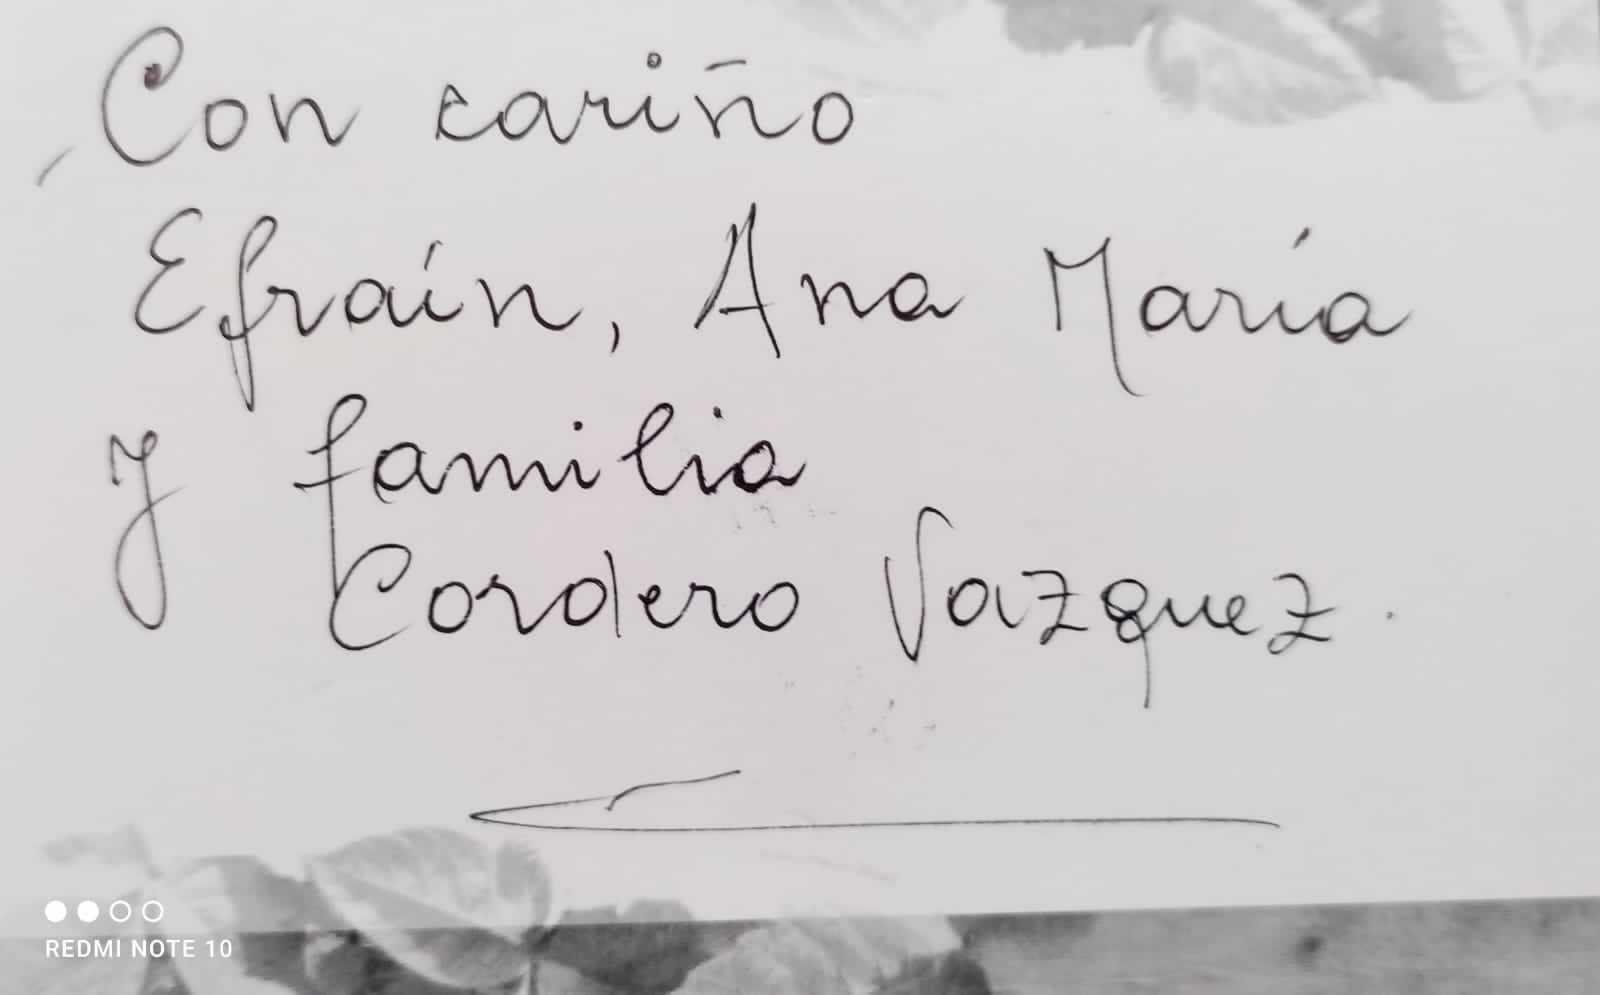 Con cariño
Efraín, Ana María
y familia
Cordero Vazquez.
REDMI NOTE 10